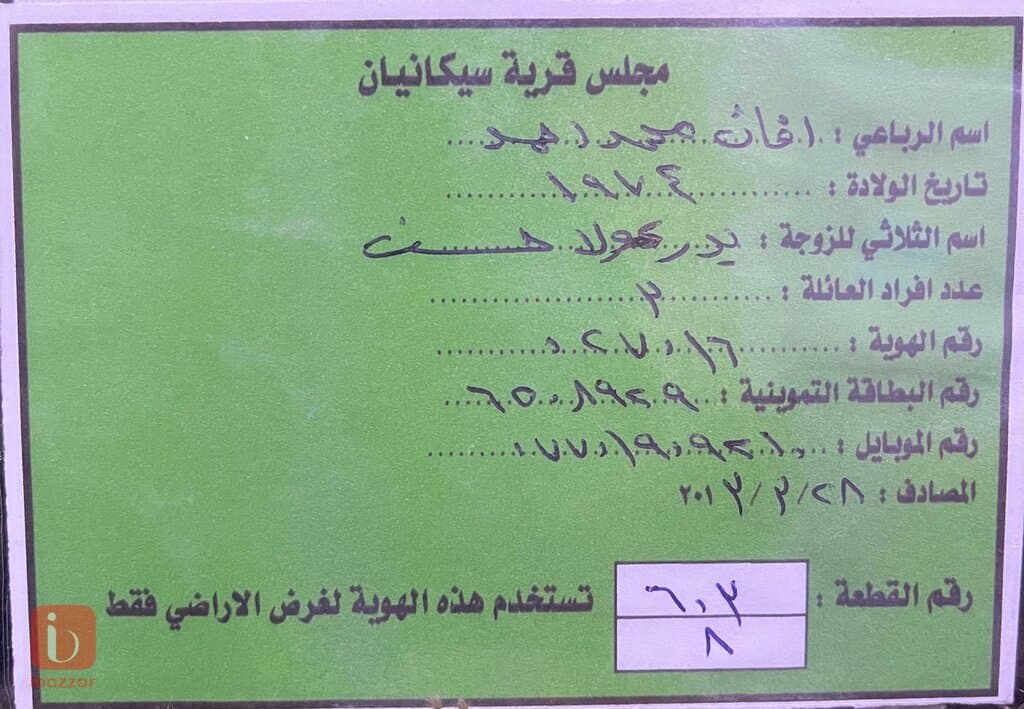 مجلس قرية سيكانيان
اسم الرباعي : ........ محمد احمد ....
تاريخ الولادة : ............ ١٩٧٤ ............
اسم الثلاثي للزوجة : ........ حسن
عدد افراد العائلة : ............ ٣ ......................
رقم الهوية : ........... ٠٢٧٠١٦ ...........
رقم البطاقة التموينية : .. ٦٥٠٨٩٢٩ ....
رقم الموبايل : .... ٠٧٧٠١٩٠٩٢١٠ ........
المصادف : ٢٨ /٣ /٢٠١٣
رقم القطعة : ٦٠٣ تستخدم هذه الهوية لغرض الاراضي فقط
٨
mazzar